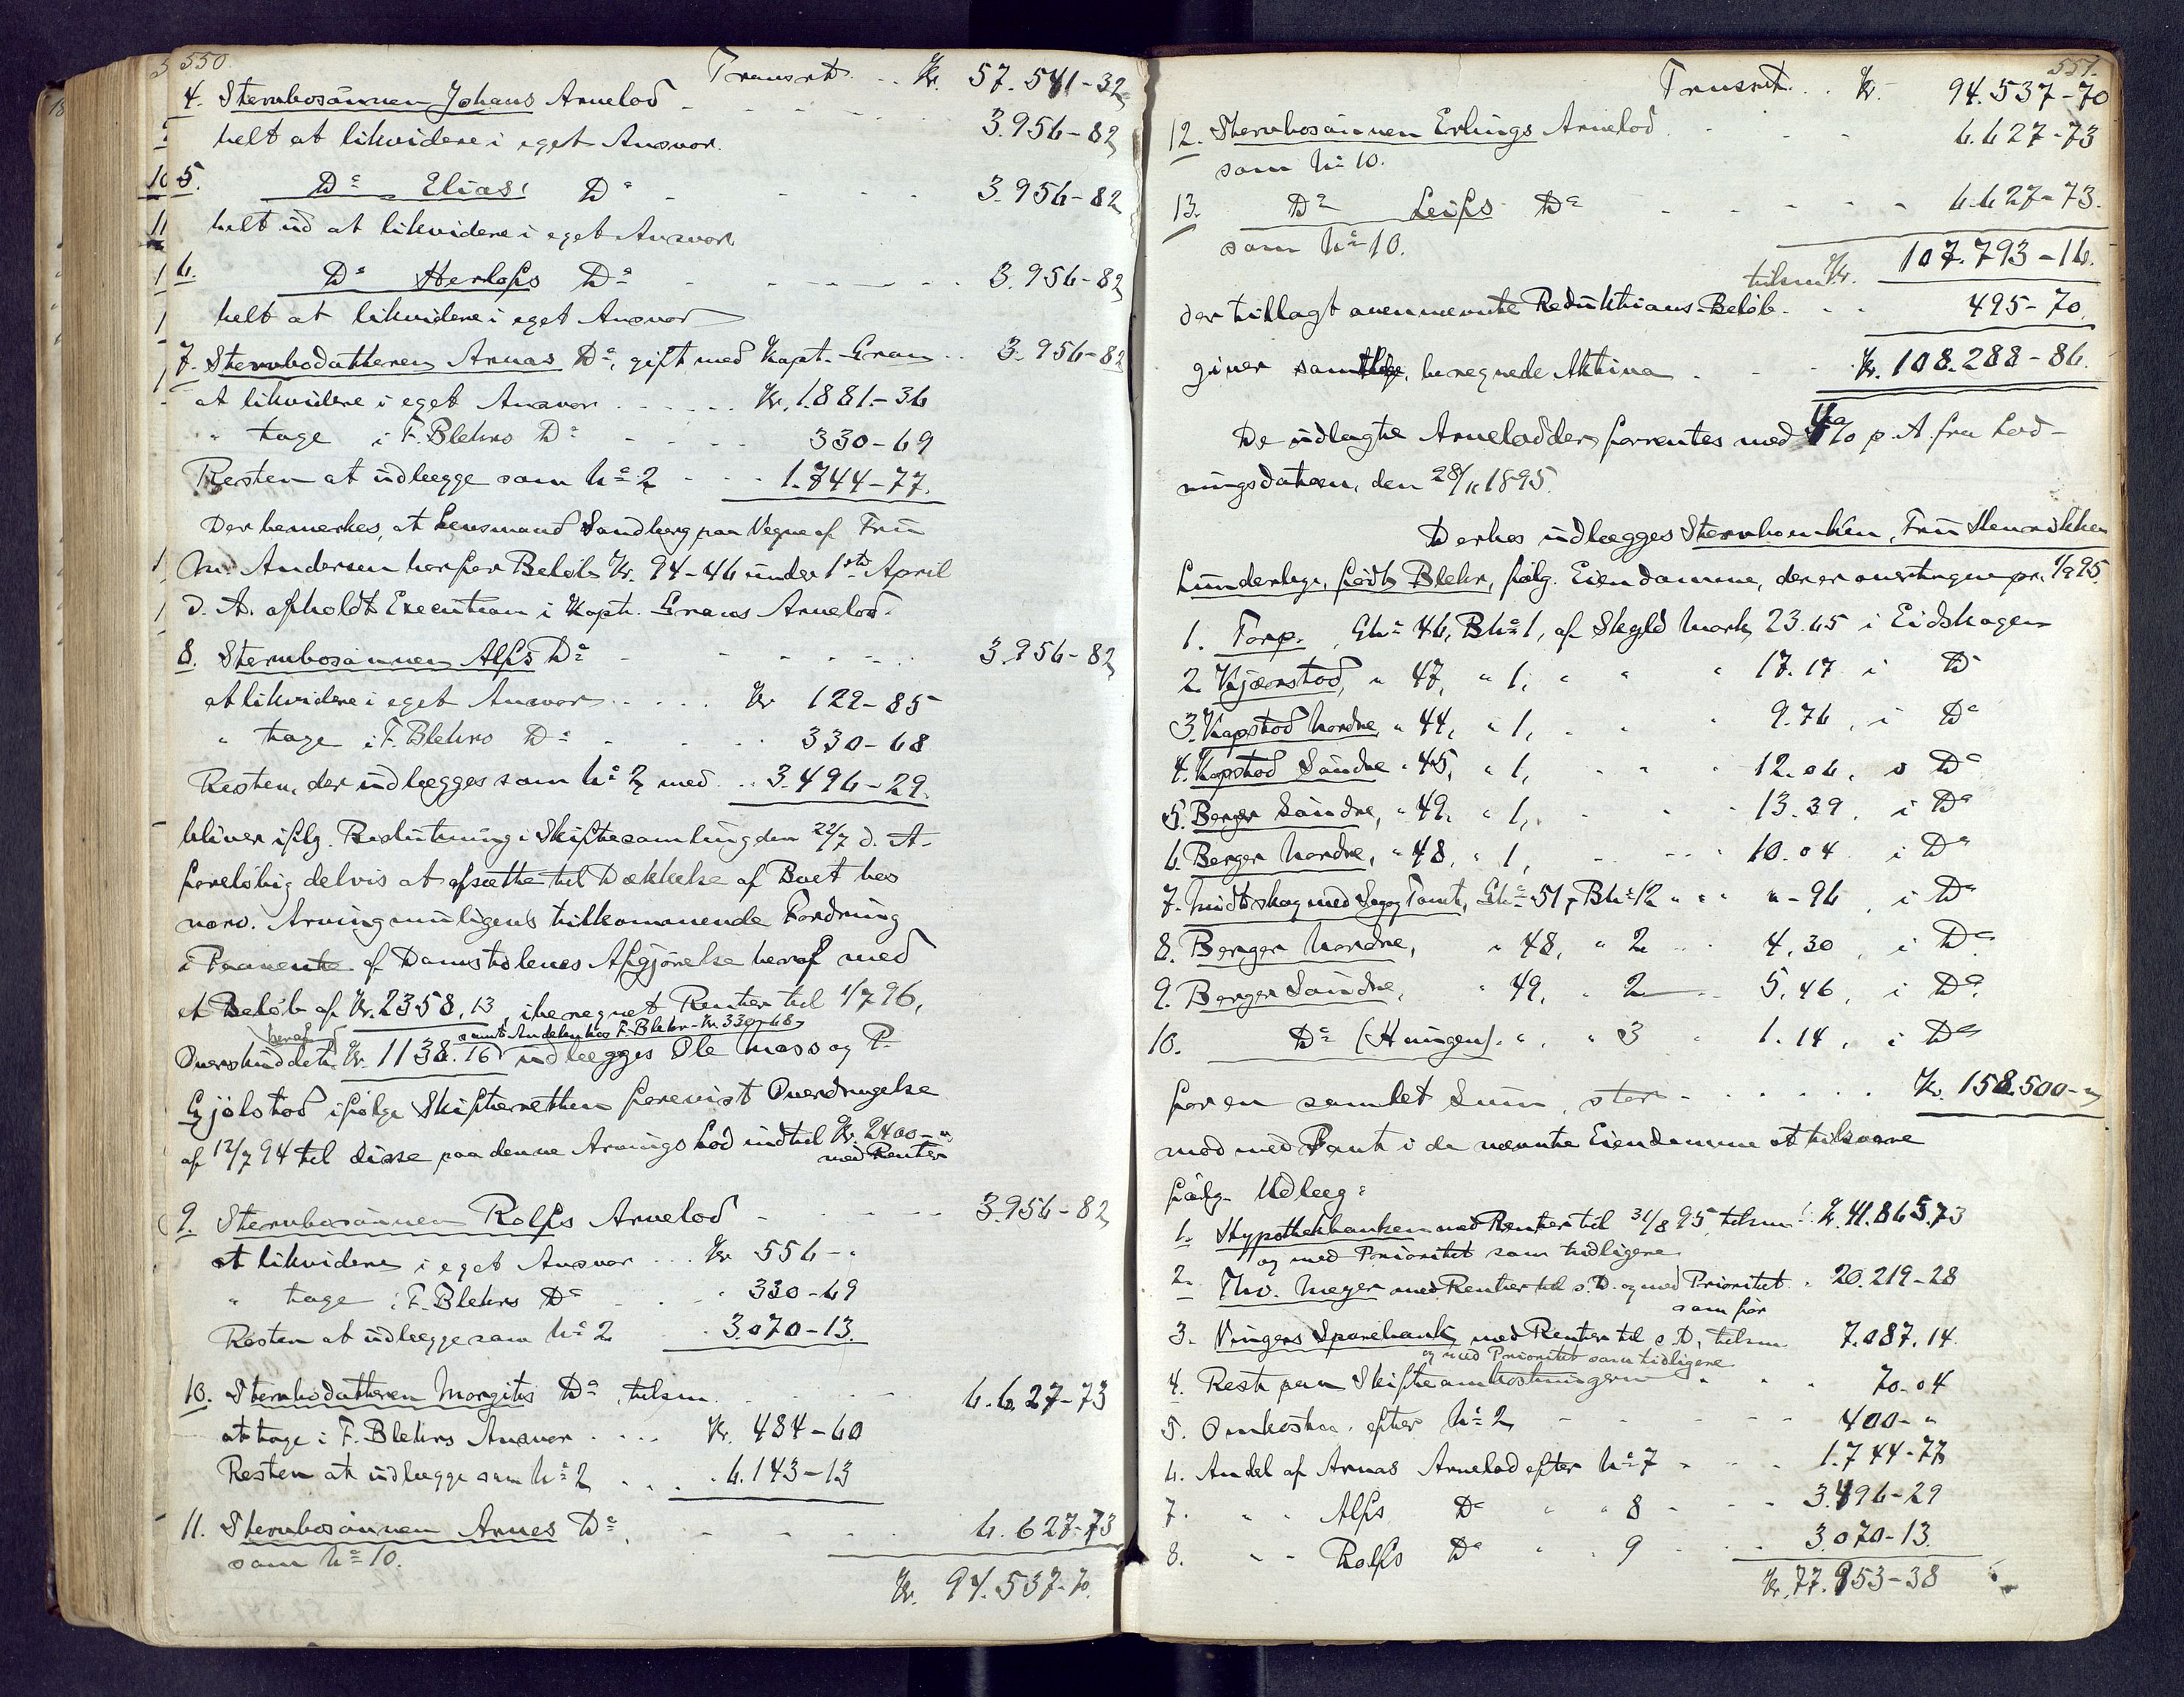 550.
Transrt. .. Kr. 57.541-32
4. Stervbosönnen Johans Arvelod - - - - - 3.956-82
helt at likvidere i eget Ansvar.
5. Do Elias' Do - - - 3.956-82
helt ud at likvidere i eget Ansvar
6. Do Herlofs Do - - - - - 3.956-82
helt at likvidere i eget Ansvar
7. Stervbodatteren Arnas Do, gift med Kapt. Gran .. 3.956-82
at likvidere i eget Ansvar ...... Kr. 1.881-36
" tage i F. Blehrs Do - - - - 330-69
Resten at udlægge som No 2 - - - 1.744-77.
Der bemerkes, at Lensmand Sandberg paa Vegne af Fru
M. Andersen har for Beløb Kr. 94-46 under 1ste April
d. A. afholdt Execution i Kapt. Grans Arvelod.
8. Stervbosönnen Alfs Do - - - - - - 3.956-82
at likvidere i eget Ansvar .... Kr 122-85
" tage i F. Blehrs Do - - - - 330-68
Resten, der udlægges som No 2 med .. 3.496-29.
bliver iflg. Beslutning i Skiftesamling den 22/7 d. A.
foreløbig delvis at afsætte til Dækkelse af Boet hos
nærv. Arving muligens tilkommende Fordring
i Paavente af Domstolenes Afgjörelse heraf med
et Beløb af Kr. 2358,13, iberegnet Renter til 1/7 96,
heraf samt Andelen hos F. Blehr - Kr. 330-68,
Overskuddet Kr. 1138.16 udlægges Ole Moss og P.
Gjölstad ifølge Skifteretten forevist Overdragelse
af 12/7 94 til disse paa denne Arvings Lod indtil Kr. 2400-"
med Renter
9. Stervbosönnen Rolfs Arvelod - - - - - 3.956-82
at likvidere i eget Ansvar ... Kr 556-"
" tage i F. Blehrs Do - - - 330-69
Resten at udlægge som No 2 - 3.070-13.
10. Stervbodatteren Margits Do, tilsm. - - - - 6.627-73
at tage i F. Blehrs Ansvar .... Kr. 484-60
Resten at udlægge som No 2 ... 6.143-13
11. Stervbosönnen Arnes Do. - - - - 6.627-73
som No 10.
Kr. 94.537-70.
551.
Trnsrt. .. Kr. 94.537-70
12. Stervbosönnen Erlings Arvelod. - - - 6.627-73
som No 10.
13. Do Leifs Do - - - - - 6.627-73.
som No 10.
tilsm. Kr. 107.793-16.
der tillagt ovennævnte Reduktions-Beløb. .. 495-70.
giver samtlige beregnede Aktiva - - - Kr. 108.288-86.
De udlagte Arvelodder forrentes med 4% p. A. fra Lod-
ningsdatoen, den 28/11 1895.
Derhos udlægges Stervboenken, Fru Henrikke
Lunderbye, født Blehr, følg. Eiendomme, der er overtagne pr. 1/9 95.
1. Torp, Gno 46, Bno 1, af Skyld Mark 23.65 i Eidskogen
2. Kjærstad, " 47, " 1, " " " 17.17 i Do
3. Kapstad Nordre, " 44, " 1, " " " 9.76, i Do
4. Kapstad Söndre " 45, " 1, " " " 12.06, i Do
5. Berger Söndre, " 49, " 1, " " " 13.39, i Do
6. Berger Nordre, " 48, " 1, " " " 10.04 i Do
7. Midtskog med Sag og Tomt, Gno 51, Bno 12 " " " "-96, i Do
8. Berger Nordre, " 48, " 2 " " 4.30, i Do
9. Berger Söndre, " 49, " 2 " " 5.46, i Do.
10. Do (Haugen). ", " 3 " 1.14, i Do
for en samlet Sum, stor - - - - - - Kr. 158.500-"
mod med Pant i de nævnte Eiendomme at tilsvare
følg. Udlæg:
1. Hypothekbanken med Renter til 31/8 95, tilsm. Kr. 41.865.73
og med Prioritet som tidligere
2. Thv. Meyer med Renter til s. D. og med Prioritet . 20.219-28
som før
3. Vingers Sparebank med Renter til s. D, tilsm. 7.087.14.
og med Prioritet som tidligere
4. Rest paa Skifteomkostningerne " . . . 70-04
5. Omkostn. efter No 2 - - - - - - 400-"
6. Andel af Arnas Arvelod efter No 7 - - - 1.744-77
7. " " Alfs Do " " 8 - - - 3.496-29
8. " " Rolfs Do " " 9 - - - 3.070-13.
Kr. 77.953-38